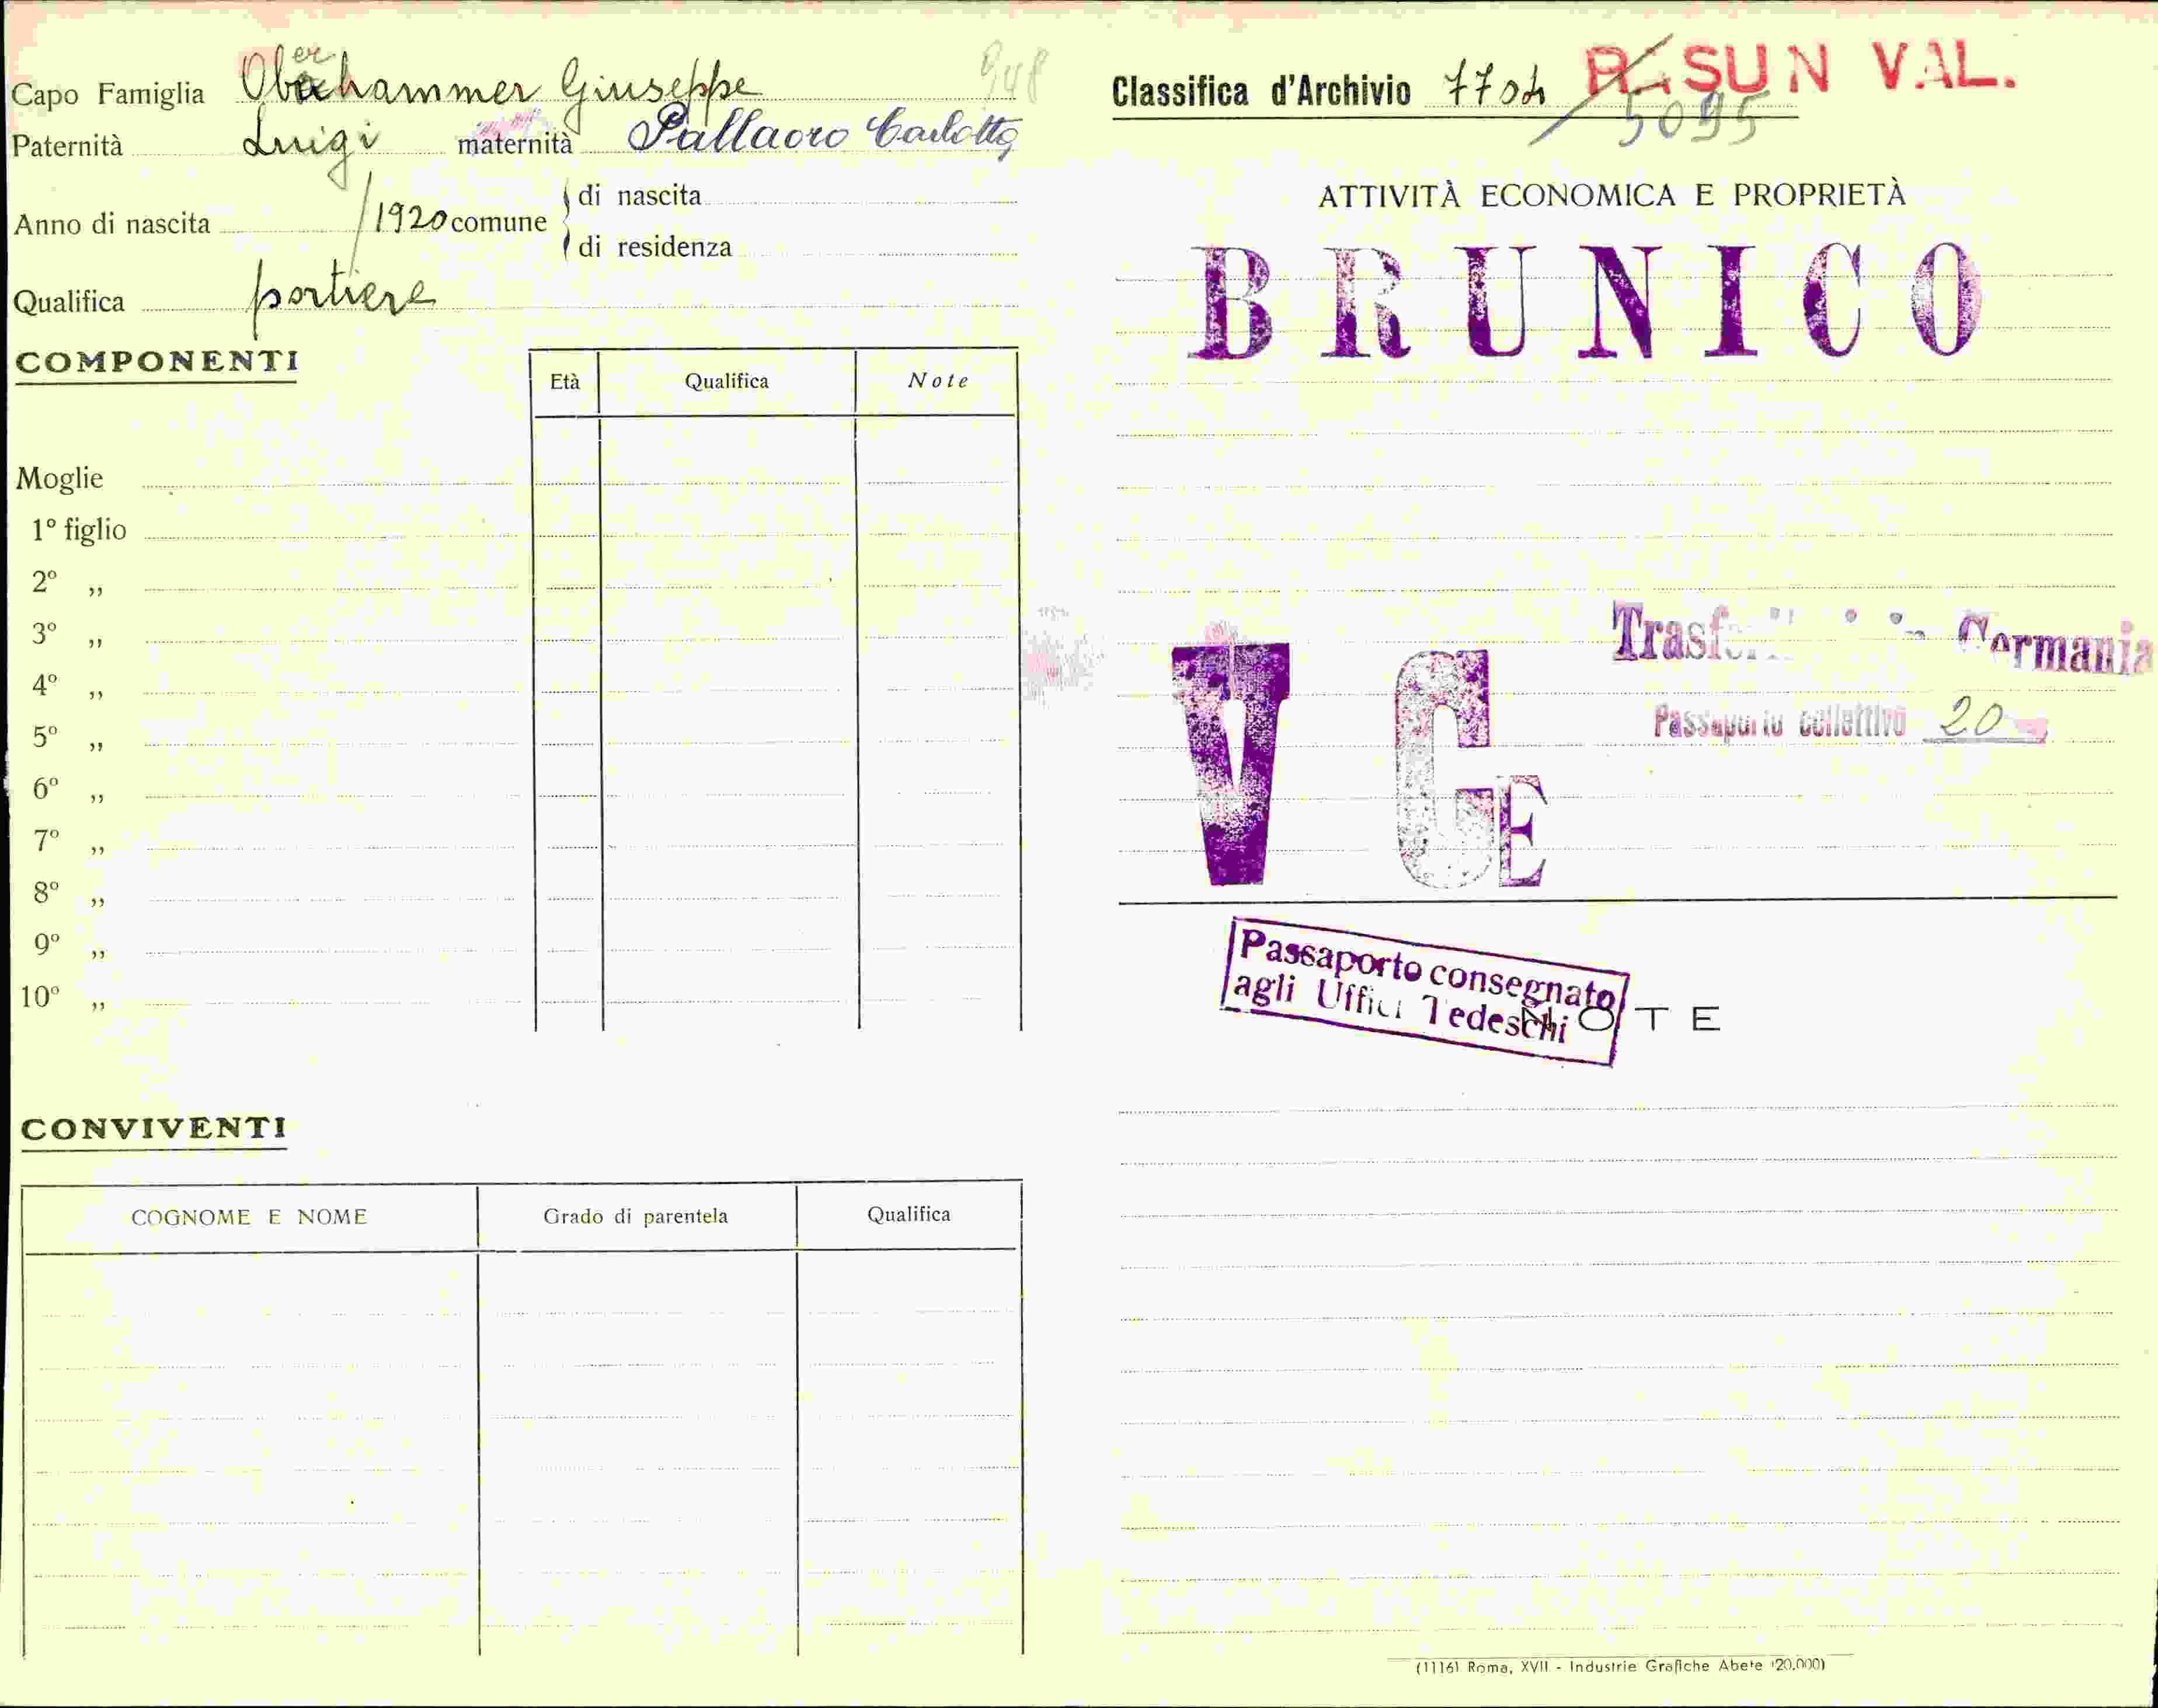 Capo Famiglia Oberhammer Giuseppe 948
Paternità Luigi maternità Pallaoro Carlotta
Anno di nascita /1920 comune di nascita
di residenza
Qualifica portiere
COMPONENTI
Età Qualifica Note
Moglie
1º figlio
2º „
3º „
4º „
5º „
6º „
7º „
8º „
9º „
10º „
CONVIVENTI
COGNOME E NOME Grado di parentela Qualifica
Classifica d'Archivio 7704 R. SUN VAL.
5095
ATTIVITÀ ECONOMICA E PROPRIETÀ
BRUNICO
Germania
Passaporto collettivo 20
V G E
Passaporto consegnato
agli Uffici Tedeschi
NOTE
(1116) Roma, XVII - Industrie Grafiche Abete (20.000)